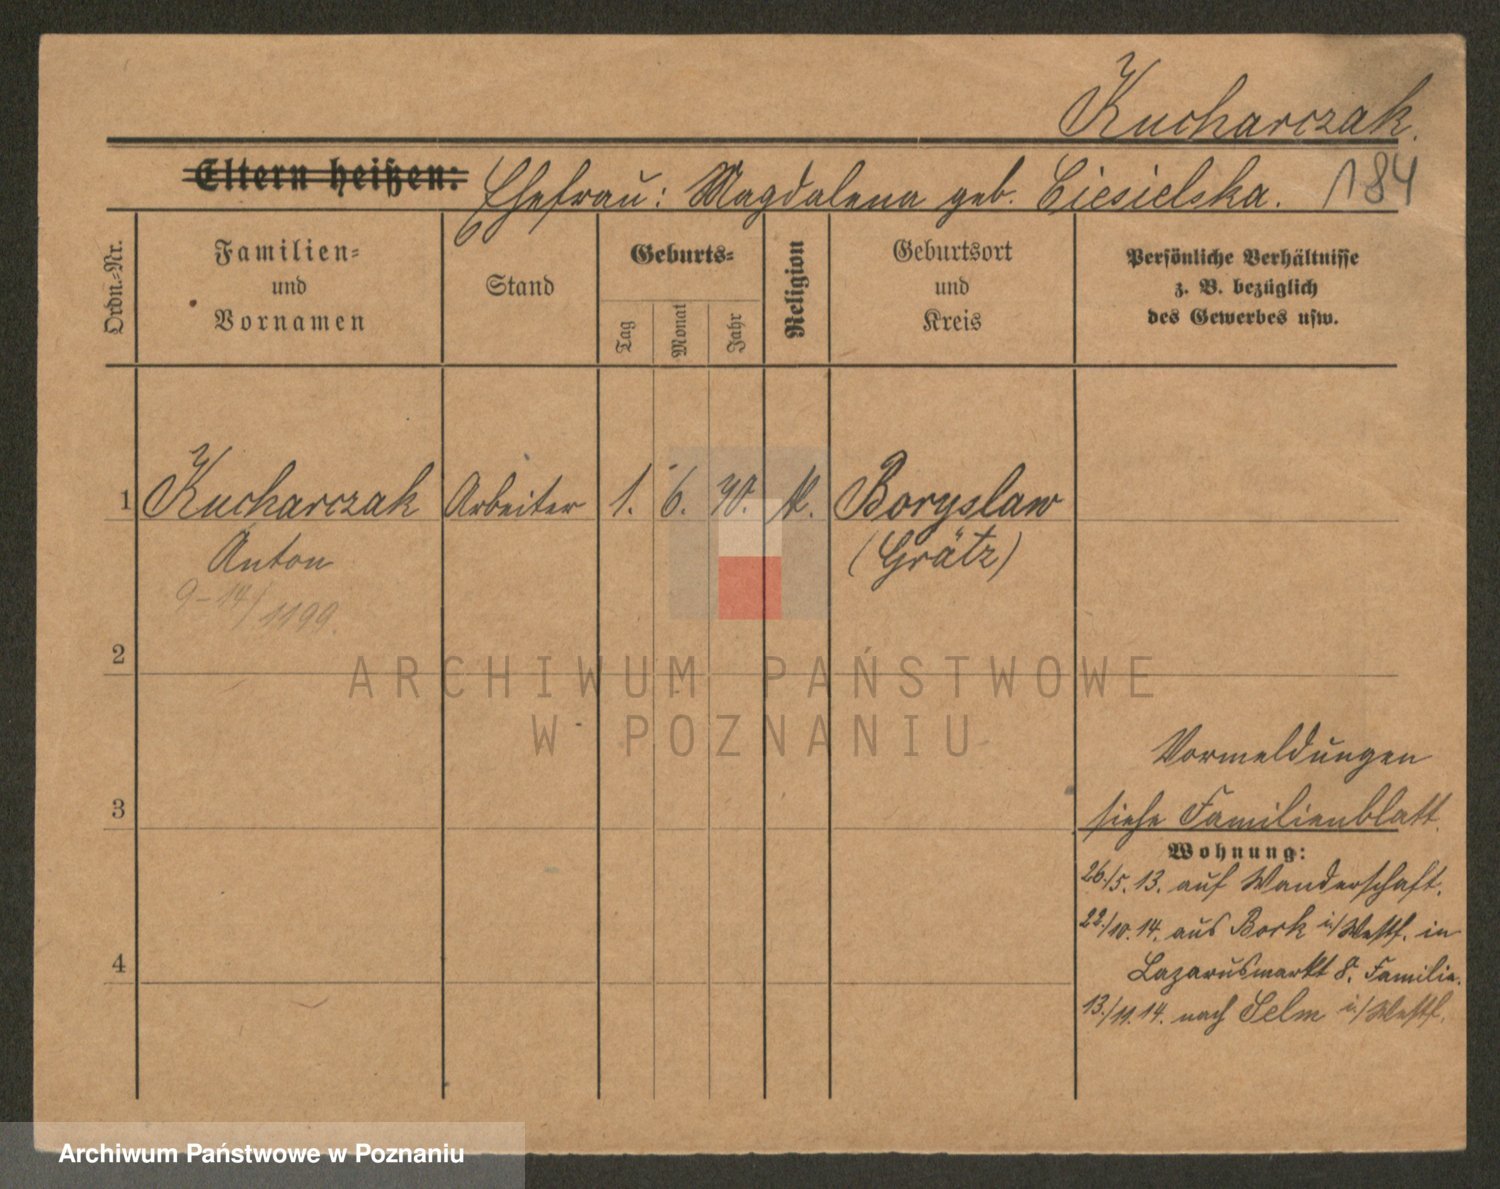 Kucharczak.
Eltern heißen: Ehefrau: Magdalena geb. Ciesielska. 184
Ordn.-Nr.
Familien-
und
Vornamen
Stand
Geburts-
Tag
Monat
Jahr
Religion
Geburtsort
und
Kreis
Persönliche Verhältnisse
z. B. bezüglich
des Gewerbes usw.
1 Kucharczak Arbeiter 1. 6. k. Boryslaw
Anton (Grätz)
9-14/1199.
2
ARCHIWUM PAŃSTWOWE
W POZNANIU
Vormeldungen
3 siehe Familienblatt.
Wohnung:
26./5. 13. auf Wanderschaft.
22./10. 14. aus Bork i/Westf. in
4 Lazarusmarkt 8. Familie.
13./11. 14. nach Selm i/Westf.
Archiwum Państwowe w Poznaniu